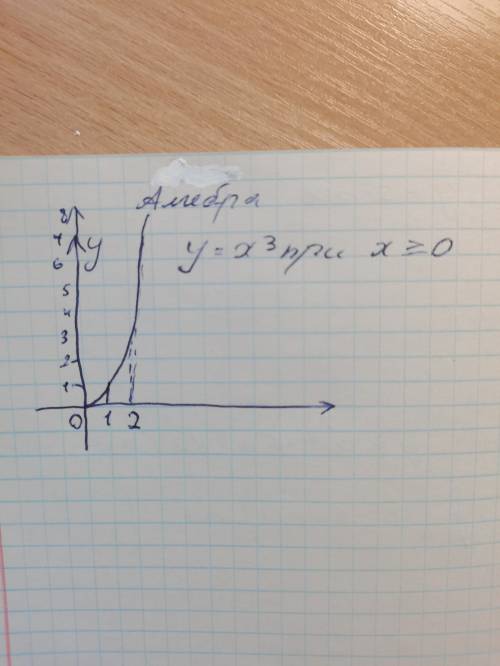 Алгебра
y = x³ при x ≥ 0
8
7 y
6
5
4
3
2
1
0 1 2